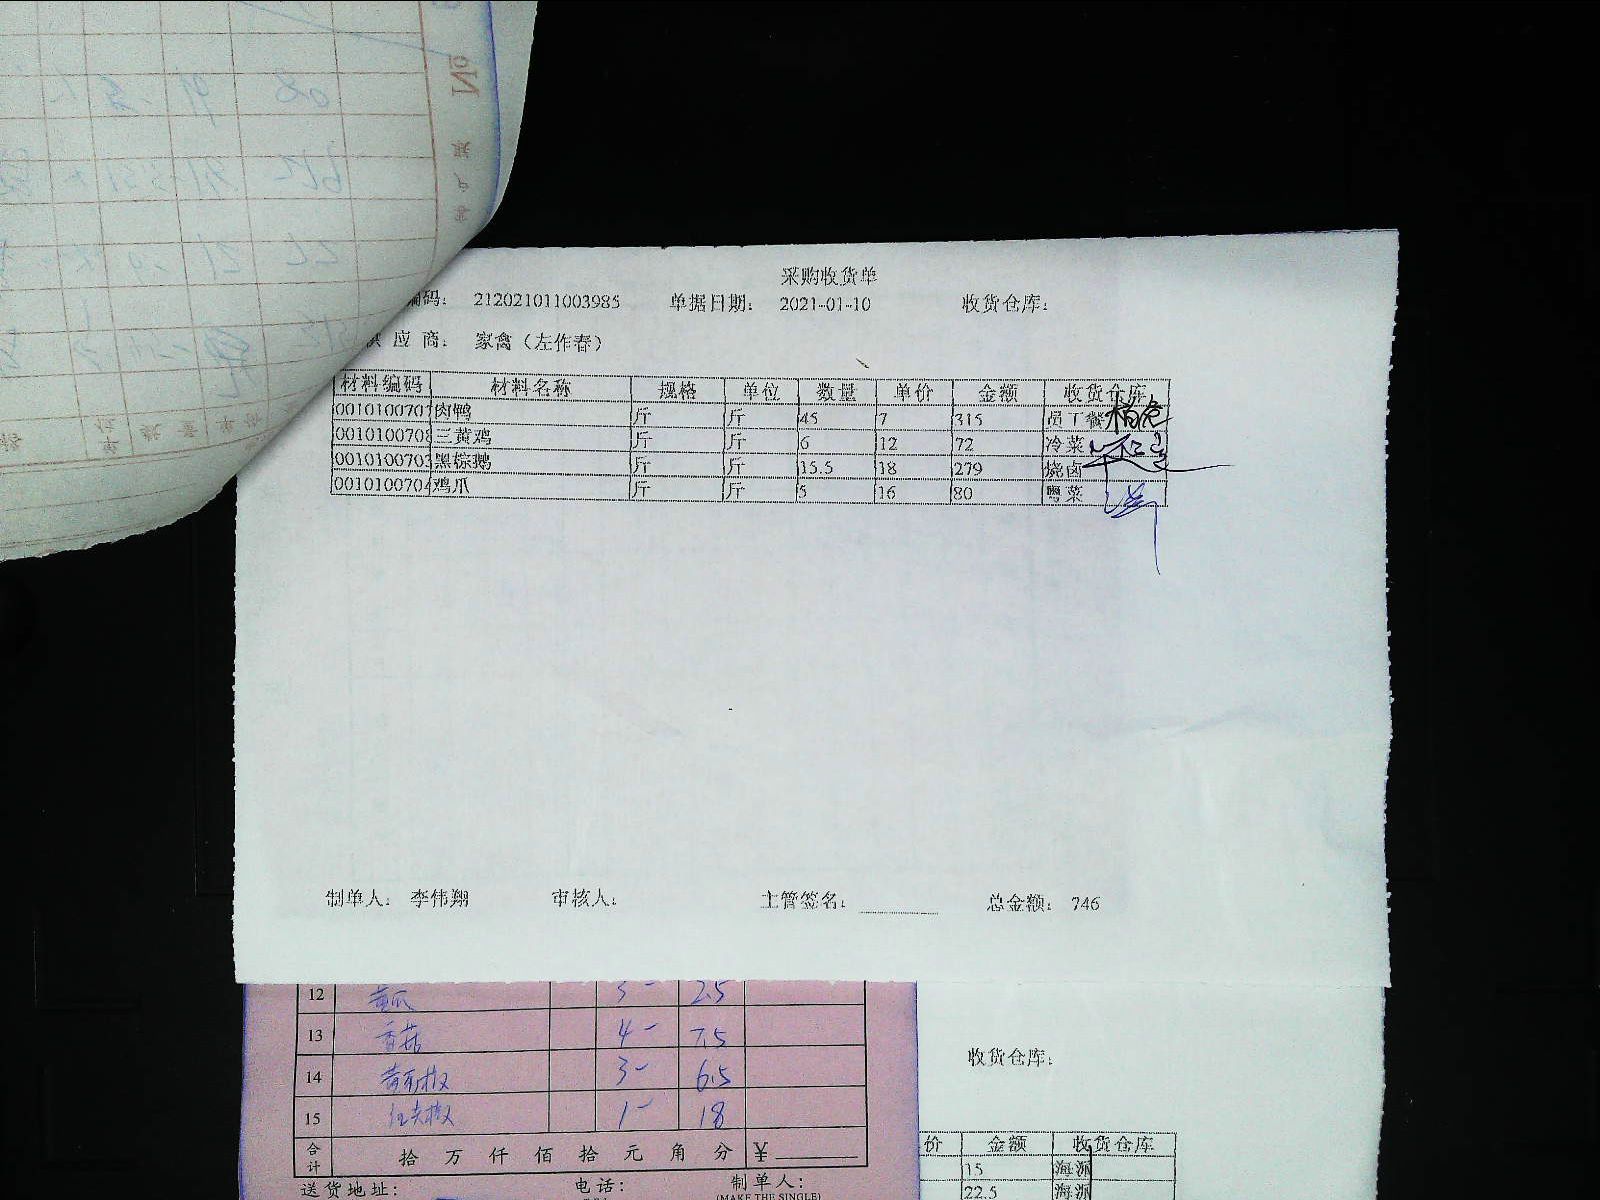 No
采购收货单
编码: 212021011003985 单据日期: 2021-01-10 收货仓库:
供应商: 家禽（左作春）
材料编码 材料名称 规格 单位 数量 单价 金额 收货仓库
0010100707 肉鸭 斤 斤 45 7 315 员工餐
0010100708 三黄鸡 斤 斤 6 12 72 冷菜
0010100703 黑棕鹅 斤 斤 15.5 18 279 烧卤
0010100704 鸡爪 斤 斤 5 16 80 粤菜
制单人: 李伟翔 审核人: 主管签名: 总金额: 746
12 黄瓜 3- 2.5
13 香菇 4- 7.5
14 3- 6.5
15 红尖椒 1- 18
合计 拾 万 仟 佰 拾 元 角 分 ¥
送货地址: 电话: 制单人:
(MAKE THE SINGLE)
收货仓库:
价 金额 收货仓库
15 海派
22.5 海派